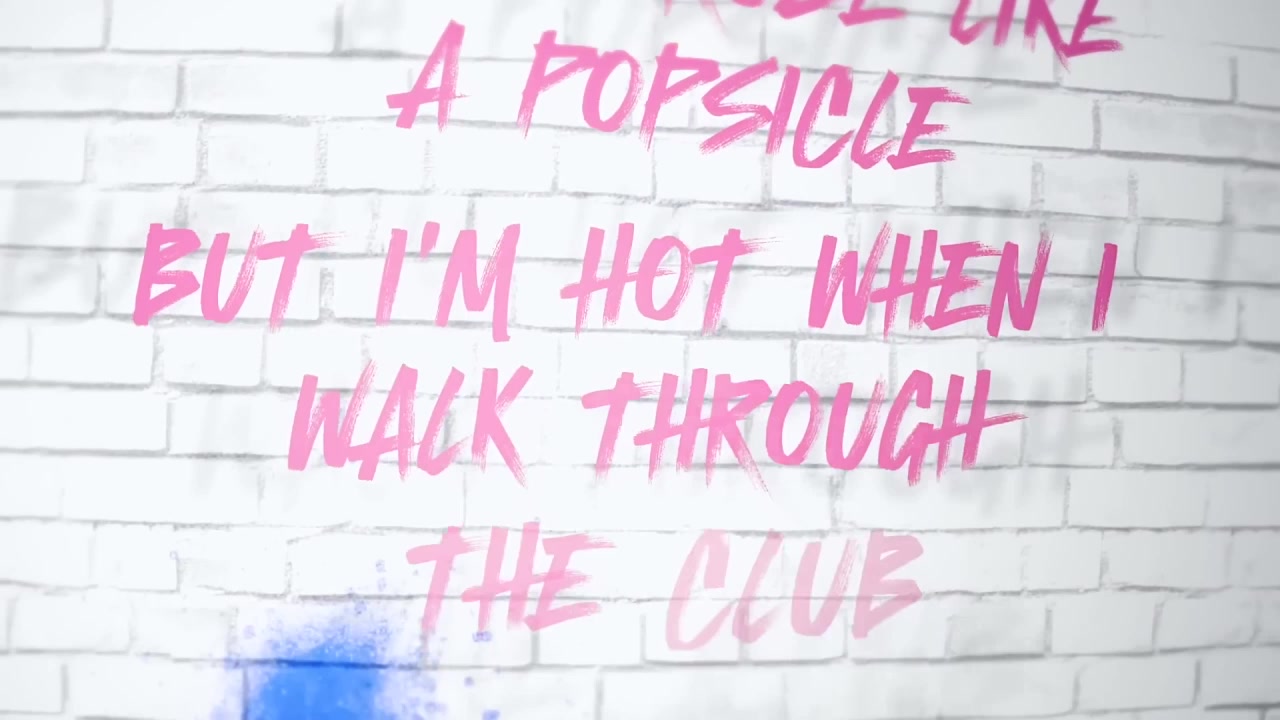 LIKE
A POPSICLE
BUT I'M HOT WHEN I
WALK THROUGH
THE CLUB